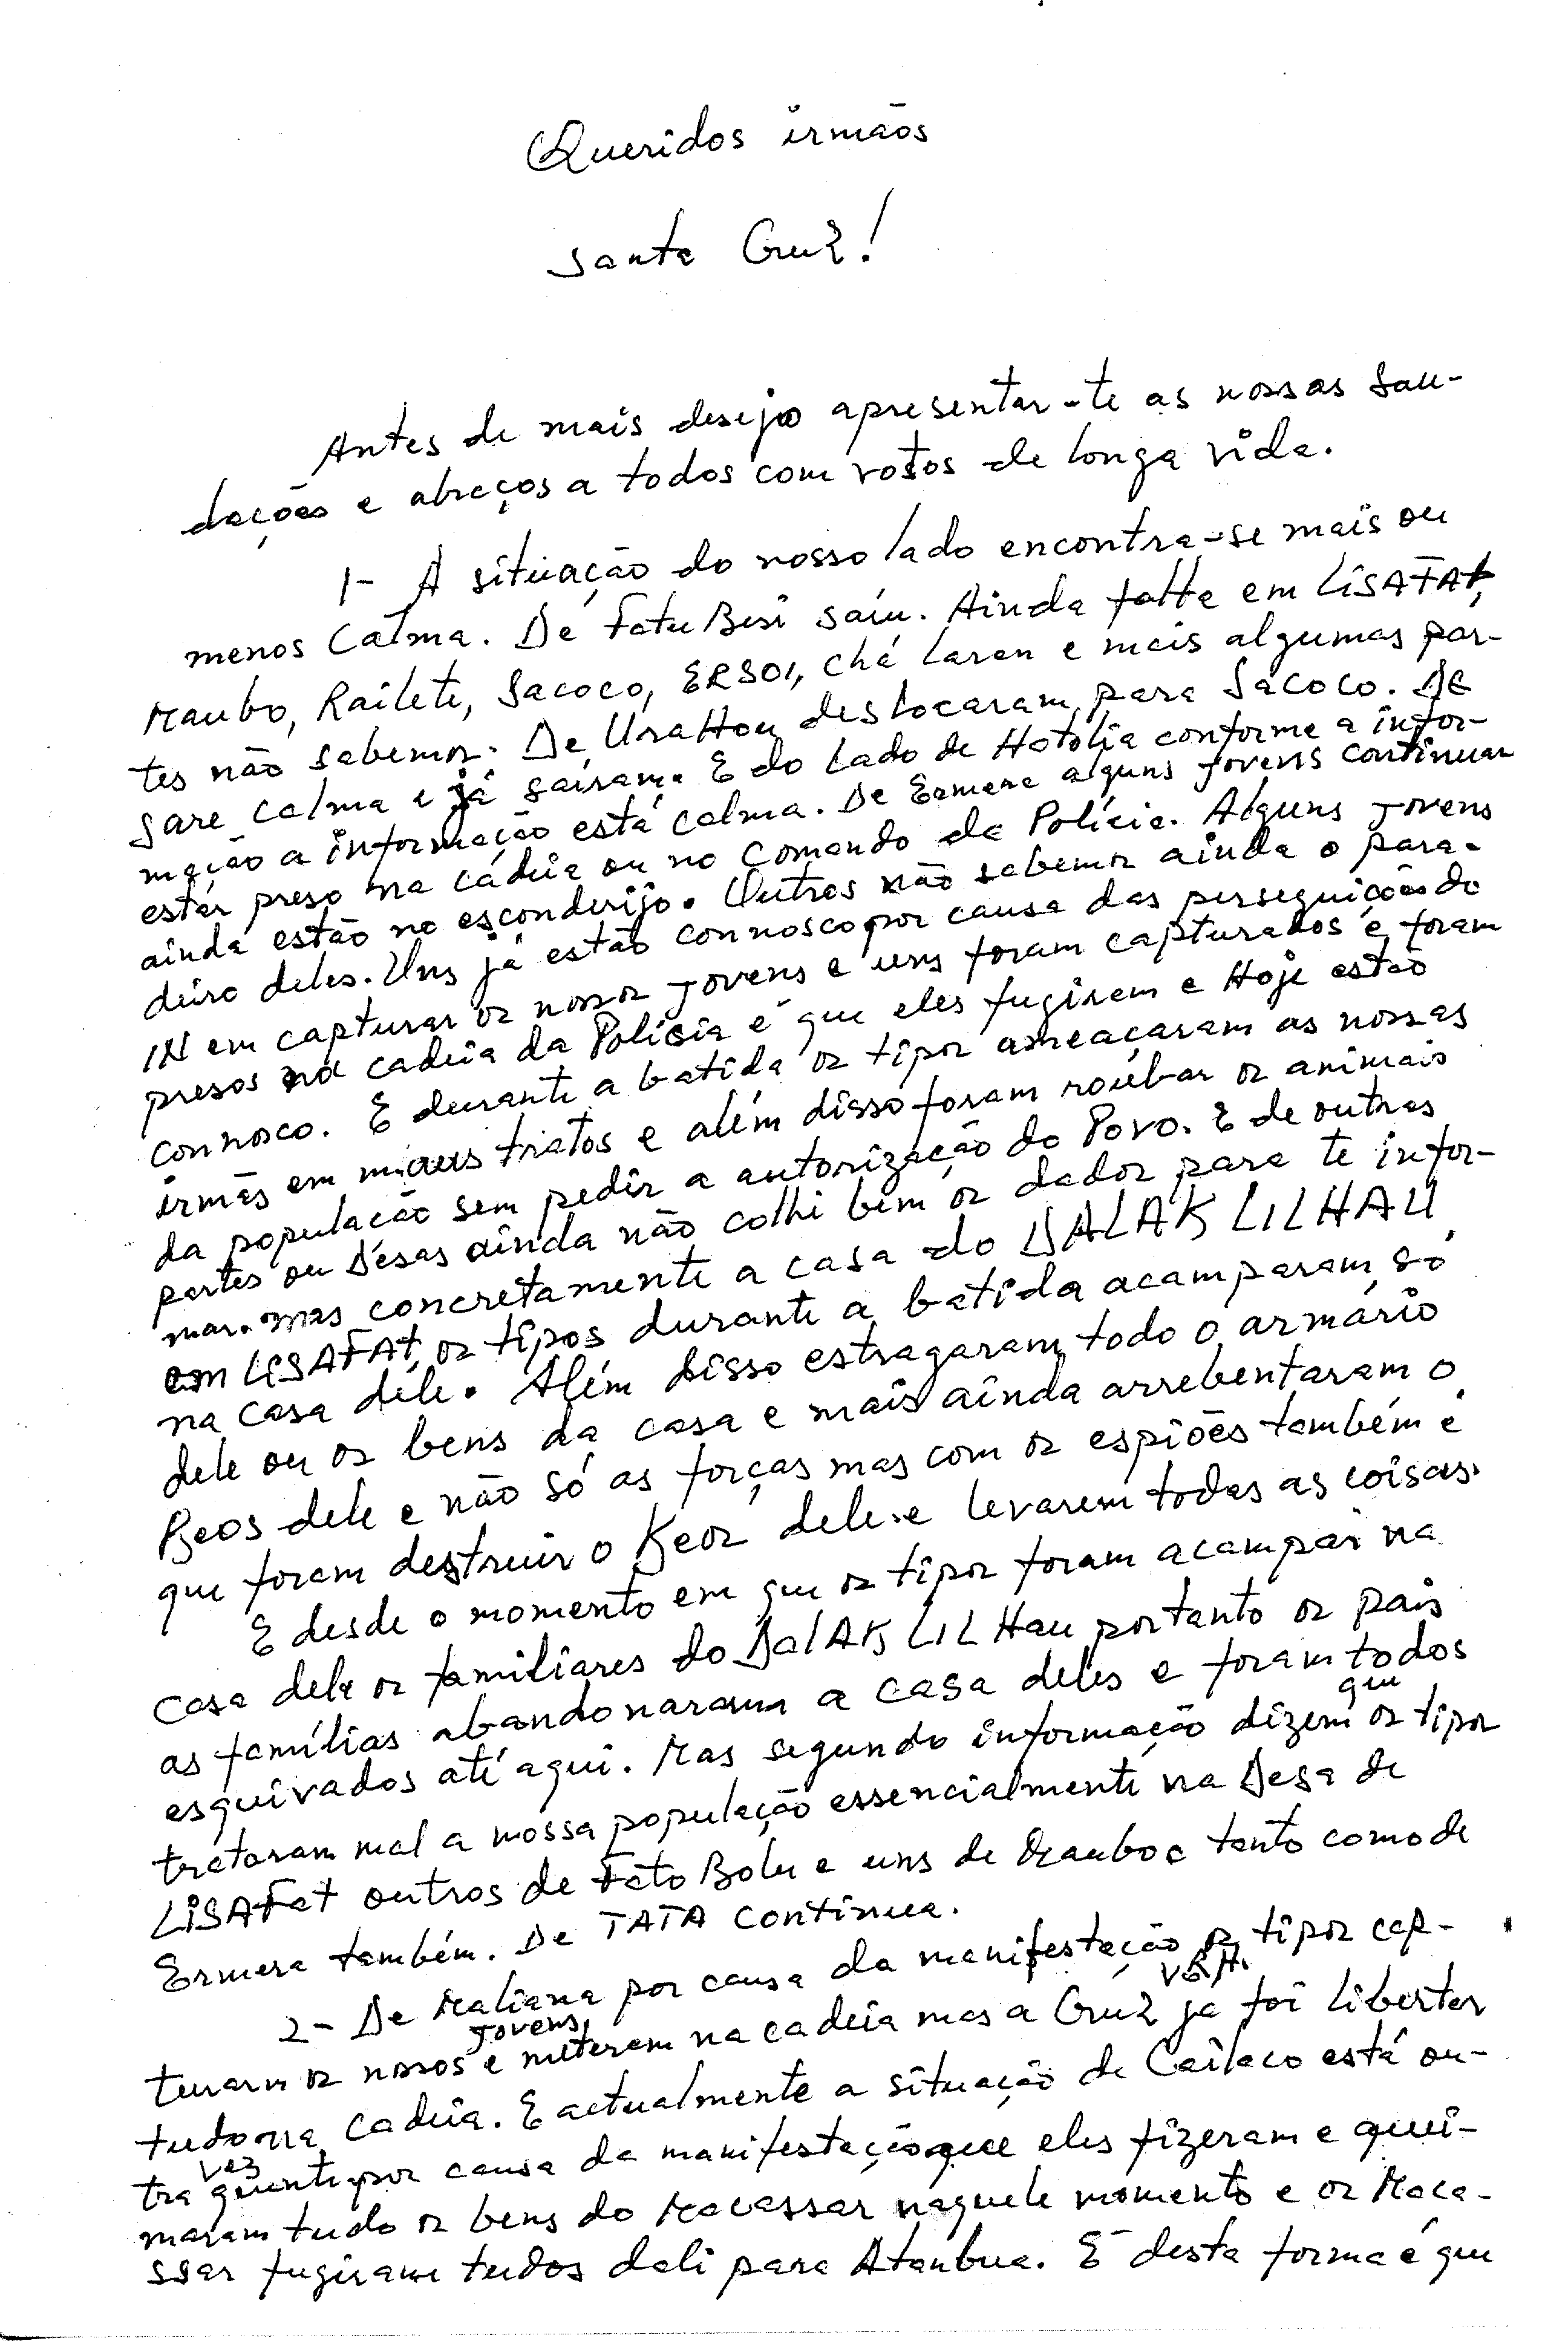 Queridos irmãos
Santa Cruz!
Antes de mais desejo apresentar-te as nossas sau-
dações e abraços a todos com votos de longa vida.
1- A situação do nosso lado encontra-se mais ou
menos calma. De Fatu Besi saíu. Ainda falta em LiSAFAt,
Maubo, Railete, Sacoco, ERSOI, Chá Laran e mais algumas par-
tes não sabemos. De UraHou deslocaram para Sacoco. De
Sare calma e já saíram. E do lado de Hatolia conforme a infor-
mação a informação está calma. De Ermera alguns jovens continuam
estar preso na cadeia ou no Comando da Polícia. Alguns jovens
ainda estão no esconderijo. Outros não sabemos ainda o para-
deiro deles. Uns já estão connosco por causa das perseguições do
IN em capturar os nossos jovens e uns foram capturados e foram
presos na cadeia da Polícia e que eles fugiram e Hoje estão
connosco. E durante a batida os tipos ameaçaram as nossas
irmãs em maus tratos e além disso foram roubar os animais
da população sem pedir a autorização do Povo. E de outras
partes ou Desas ainda não colhi bem os dados para te infor-
mar. mas concretamente a casa do DALAK LILHAU
em LiSAFAt, os tipos durante a batida acamparam só
na casa dele. Além disso estragaram todo o armário
dele ou os bens da casa e mais ainda arrebentaram o
Beos dele e não só as forças mas com os espiões também é
que foram destruir o Beos dele e levarem todas as coisas.
E desde o momento em que os tipos foram acampar na
casa dele os familiares do DalAK LILHau portanto os pais
as famílias abandonaram a casa deles e foram todos
esquivados até aqui. Mas segundo informação dizem que os tipos
trataram mal a nossa população essencialmente na Desa de
LiSAFat outros de Fato Bolu e uns de Maubo e tanto como de
Ermera também. De TATA continua.
2- De Maliana por causa da manifestação os tipos cap-
turaram os nossos jovens e meteram na cadeia mas a Cruz VERM. já foi libertar
tudo na cadeia. E actualmente a situação de Cailaco está ou-
tra vez quente por causa da manifestação que eles fizeram e quei-
maram tudo os bens do Macassar naquele momento e os Maca-
ssar fugiram tudos dali para Atanbua. E desta forma é que